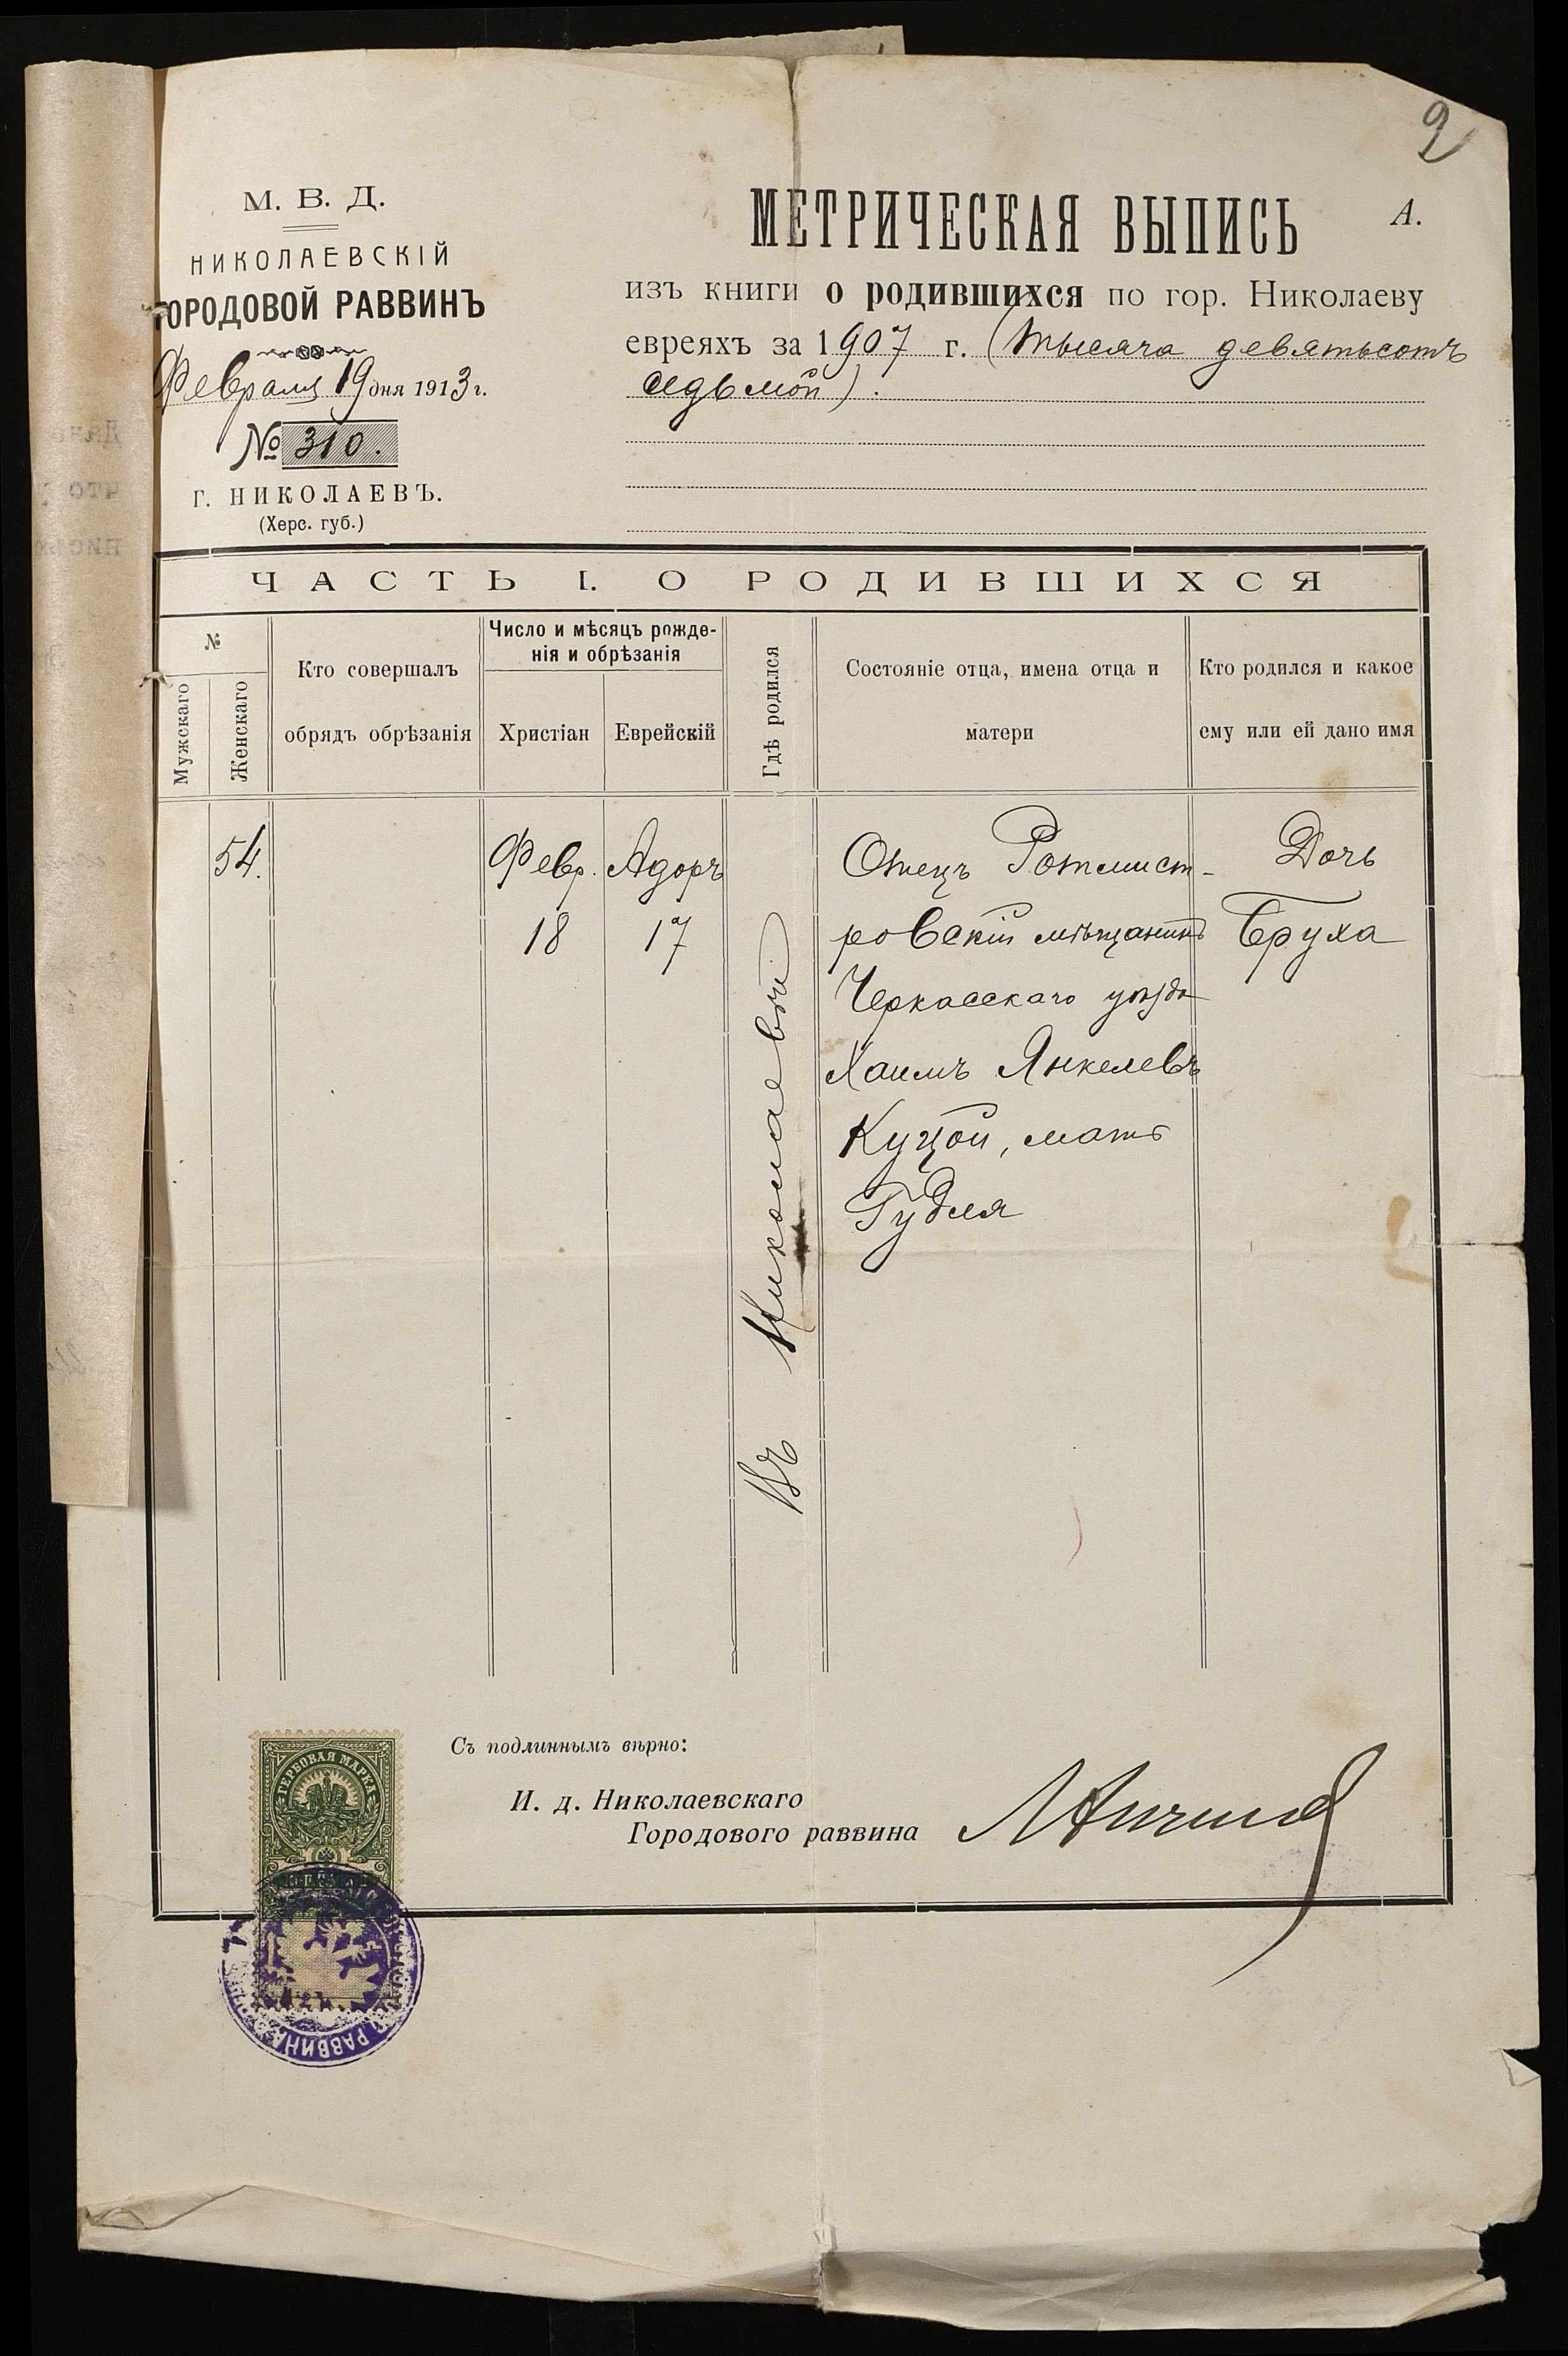 2
М. В. Д.
НИКОЛАЕВСКІЙ
ГОРОДОВОЙ РАВВИНЪ
Февраля 19 дня 1913 г.
№ 310.
Г. НИКОЛАЕВЪ.
(Херс. губ.)
МЕТРИЧЕСКАЯ ВЫПИСЬ
А.
изъ книги о родившихся по гор. Николаеву
евреяхъ за 1907 г. (тысяча девятьсотъ
седьмой).
ЧАСТЬ I. О РОДИВШИХСЯ
№
Мужскаго
Женскаго
Кто совершалъ
обрядъ обрѣзанія
Число и мѣсяцъ рожде-
нія и обрѣзанія
Христіан
Еврейскій
Гдѣ родился
Состояніе отца, имена отца и
матери
Кто родился и какое
ему или ей дано имя
54.
Февр.
18
Адоръ
17
Въ Николаевѣ
Отецъ Ротмист-
ровскій мѣщанинъ
Черкасскаго уѣзда
Хаимъ Янкелевъ
Куцой, мать
Гудля
Дочь
Бруха
Съ подлиннымъ вѣрно:
И. д. Николаевскаго
Городового раввина
ГЕРБОВАЯ МАРКА
РАВВИНА